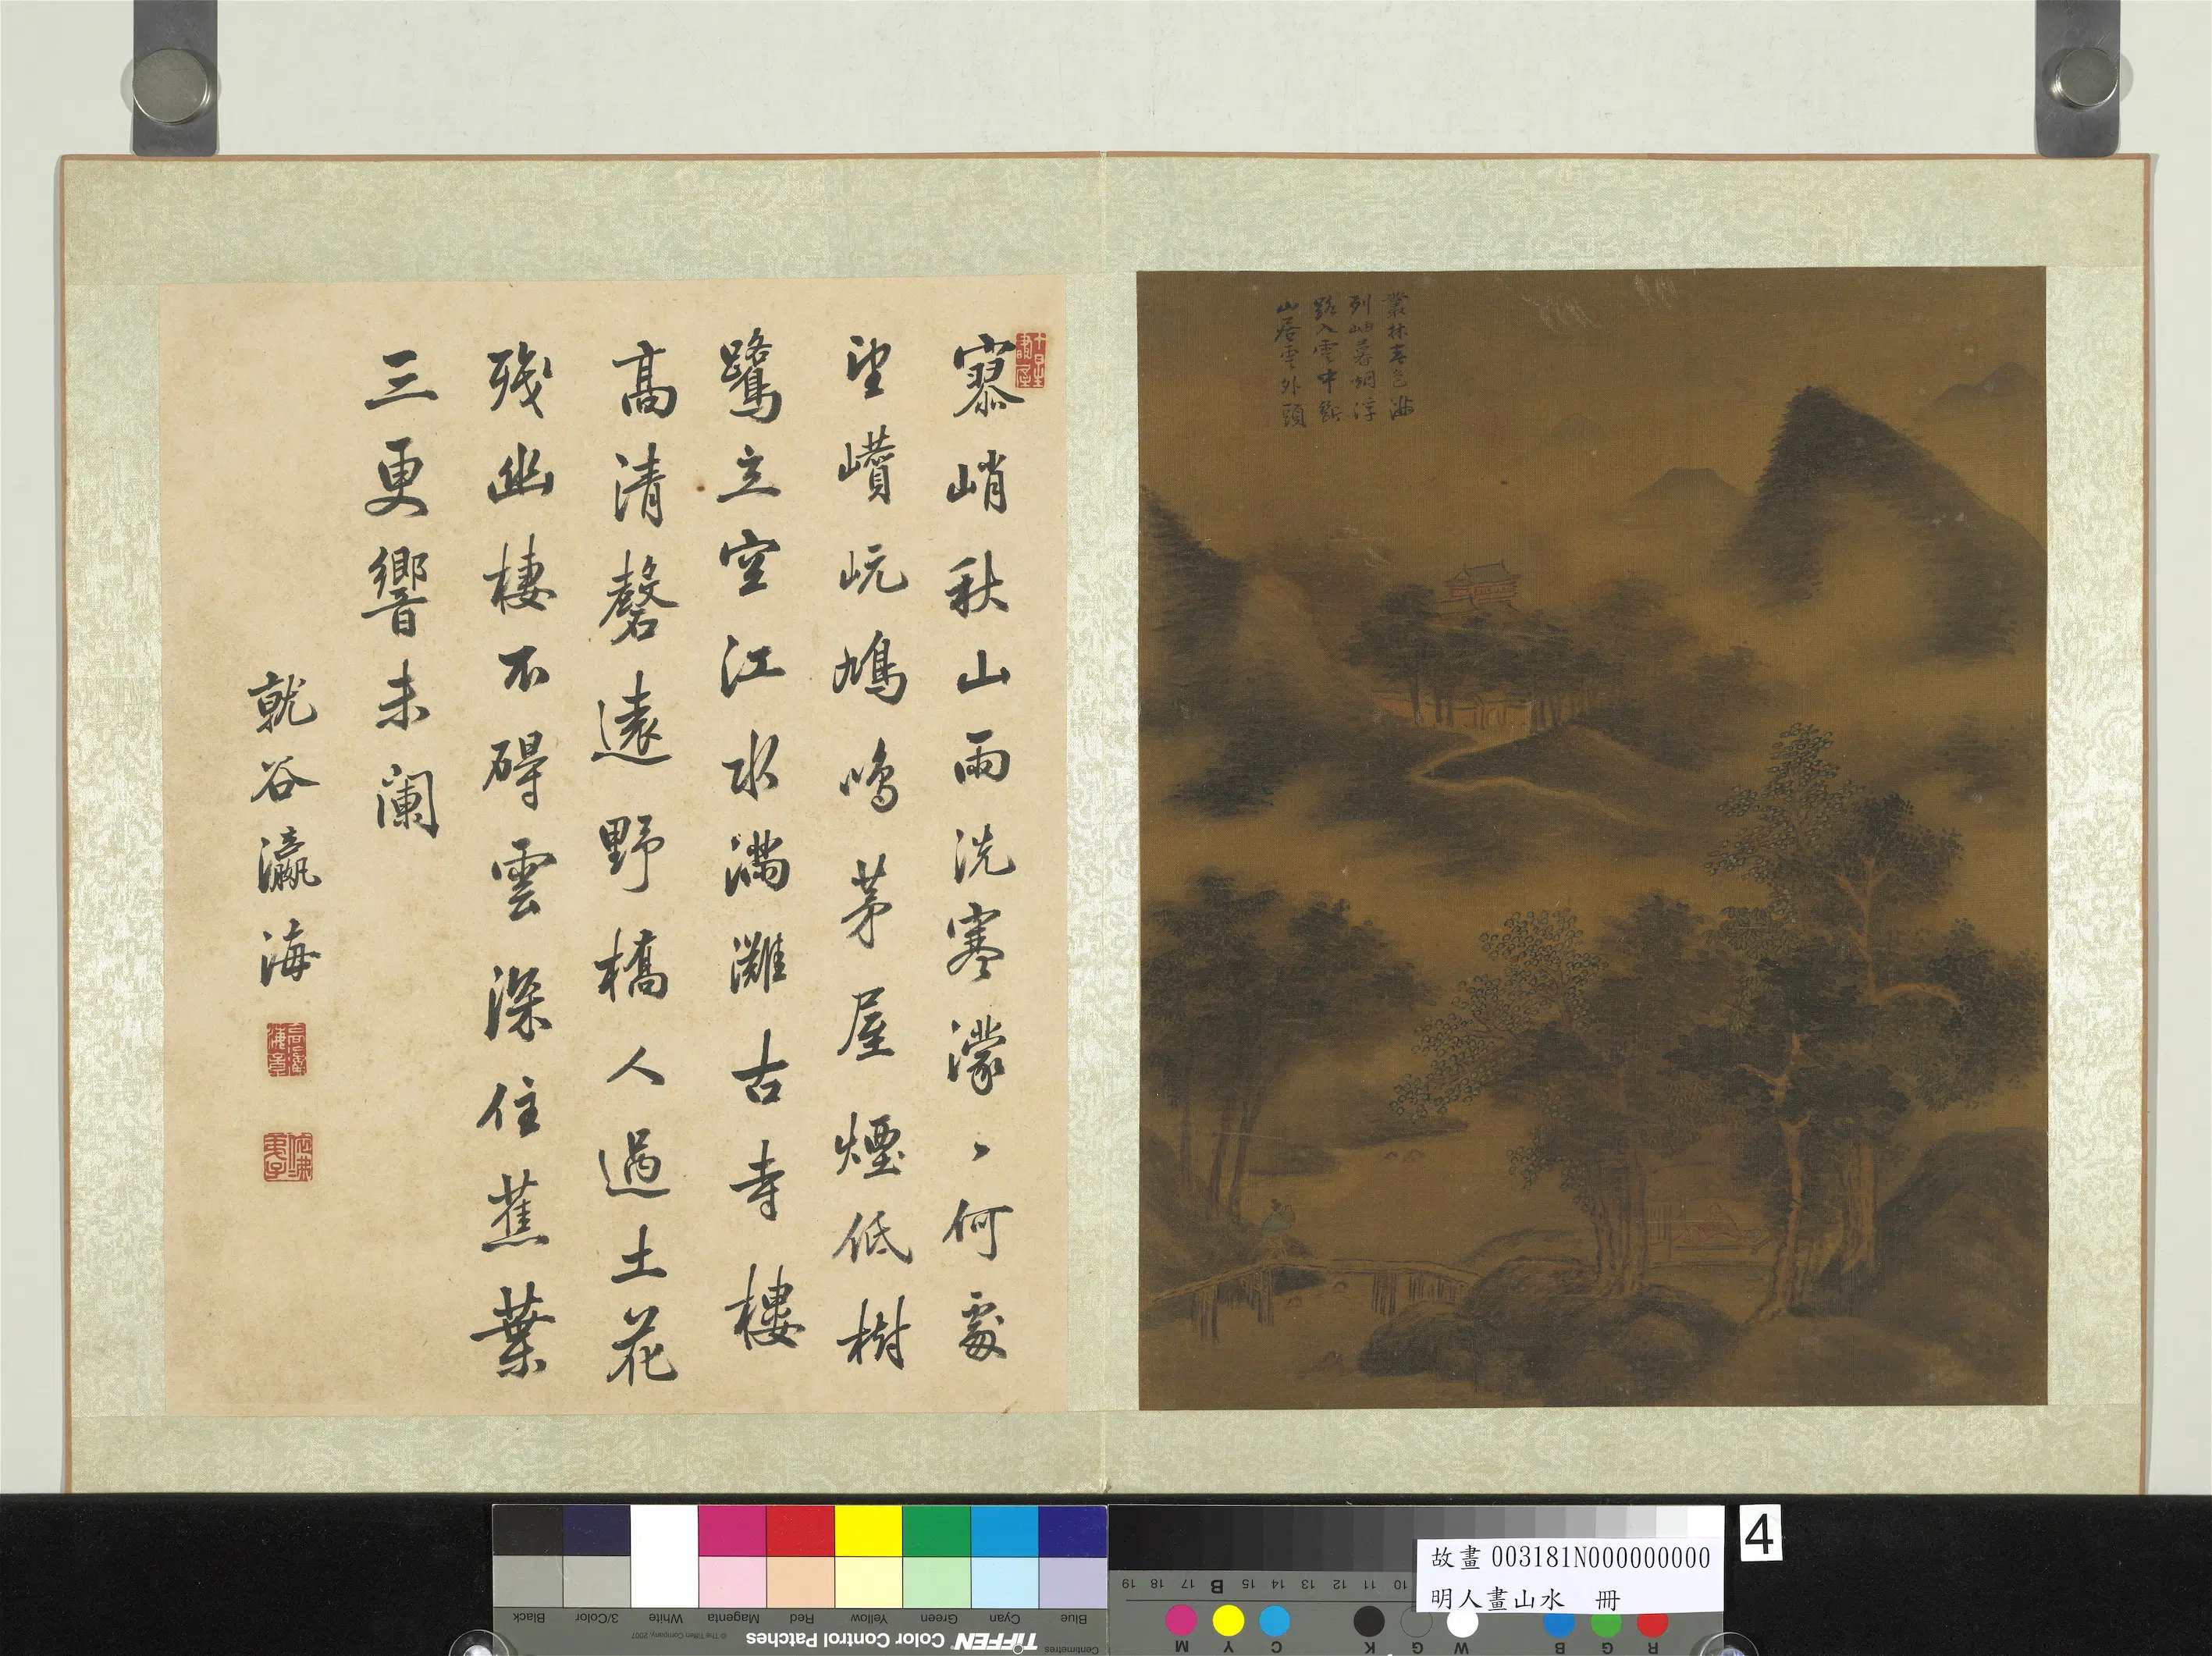 叢林春色游
列岫暮烟浮
路入雲中斷
山居雲外頭
寥峭秋山雨洗寒濛丶何處
望巑岏鳩鳴茅屋煙低樹
鷺立空江水滿灘古寺樓
高清磬遠野橋人過土花
殘幽棲不碍雲深住蕉葉
三更響未闌
就谷瀛海
4
故畫 003181N000000000
明人畫山水 冊
Blue
Cyan
Green
Yellow
Red
Magenta
White
3/Color
Black
TIFFEN Color Control Patches
© The Tiffen Company, 2007
Centimetres
10 11 12 13 14 15 B 17 18 19
R G B W G K C Y M